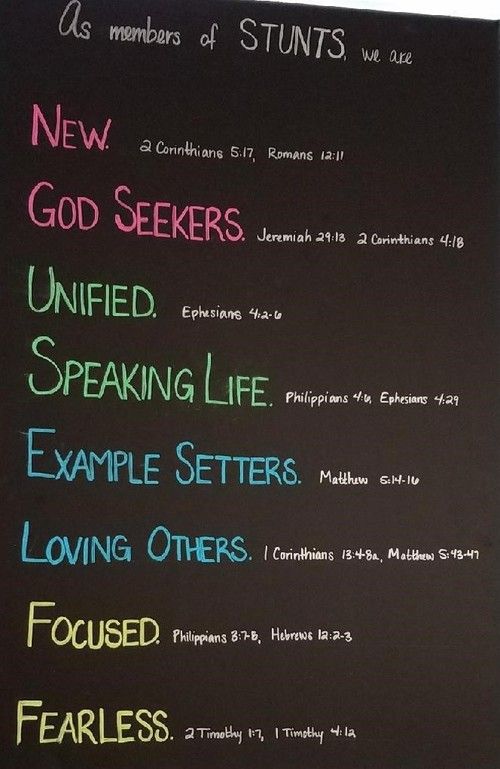 As members of STUNTS, we are
NEW. 2 Corinthians 5:17, Romans 12:11
GOD SEEKERS. Jeremiah 29:13 2 Corinthians 4:18
UNIFIED. Ephesians 4:2-6
SPEAKING LIFE. Philippians 4:6, Ephesians 4:29
EXAMPLE SETTERS. Matthew 5:14-16
LOVING OTHERS. 1 Corinthians 13:4-8a, Matthew 5:43-47
FOCUSED. Philippians 3:7-8, Hebrews 12:2-3
FEARLESS. 2 Timothy 1:7, 1 Timothy 4:12